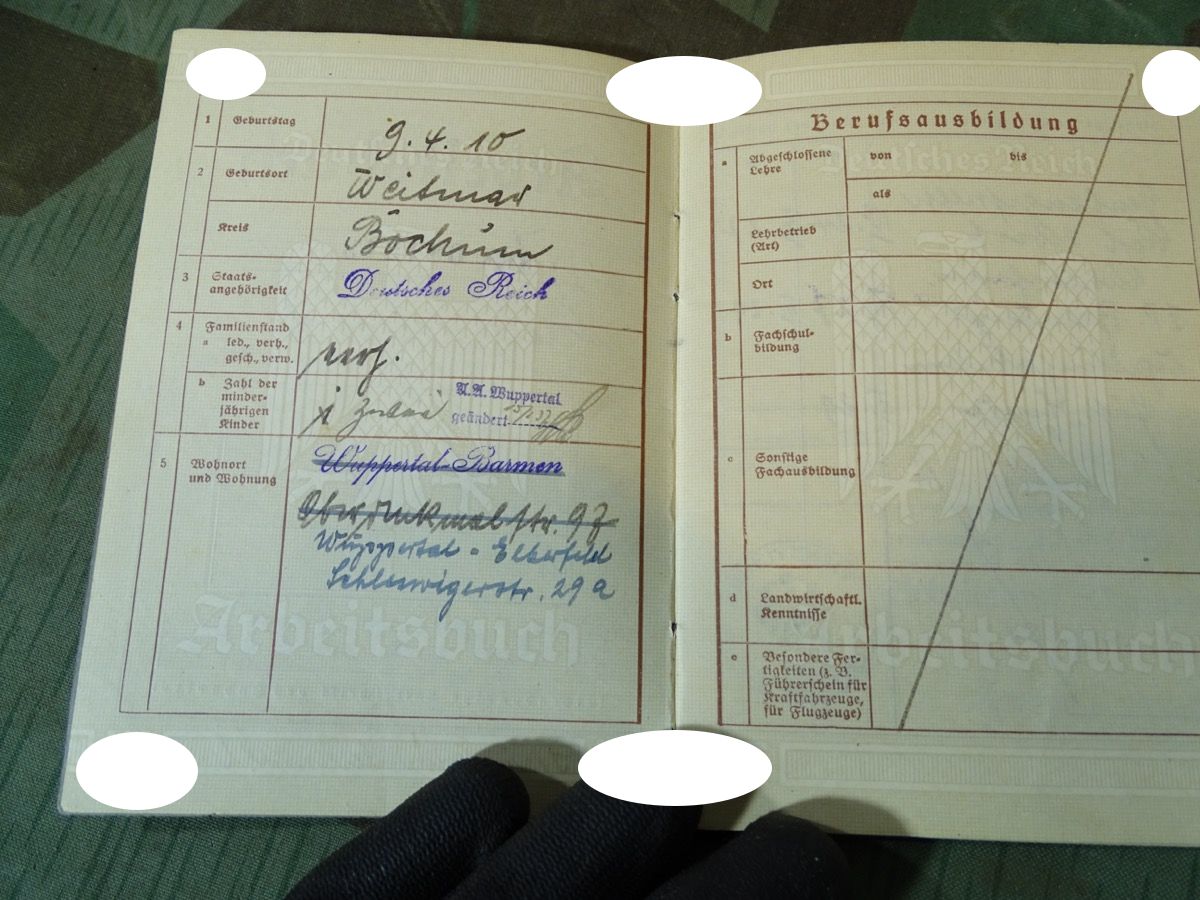 1 Geburtstag 9. 4. 10
2 Geburtsort Weitmar
Kreis Bochum
3 Staats-
angehörigkeit Deutsches Reich
4 Familienstand
a led., verh.,
gesch., verw. verh.
b Zahl der
minder-
jährigen
Kinder 1 zwei
A.A. Wuppertal
geändert
5 Wohnort
und Wohnung
Wuppertal-Barmen
Oberdenkmalstr. 97
Wuppertal - Elberfeld
Schleswigerstr. 29a
Deutsches Reich
Arbeitsbuch
Berufsausbildung
a Abgeschlossene
Lehre
von bis
als
Lehrbetrieb
(Art)
Ort
b Fachschul-
bildung
c Sonstige
Fachausbildung
d Landwirtschaftl.
Kenntnisse
e Besondere Fer-
tigkeiten (z. B.
Führerschein für
Kraftfahrzeuge,
für Flugzeuge)
Deutsches Reich
Arbeitsbuch